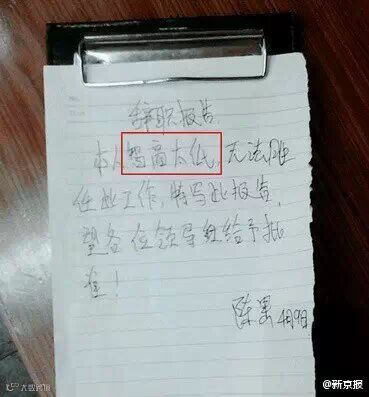 辞职报告
本人智商太低,无法胜
任此工作,特写此报告,
望各位领导给予批
准!
陈果 4月9日
@新京报